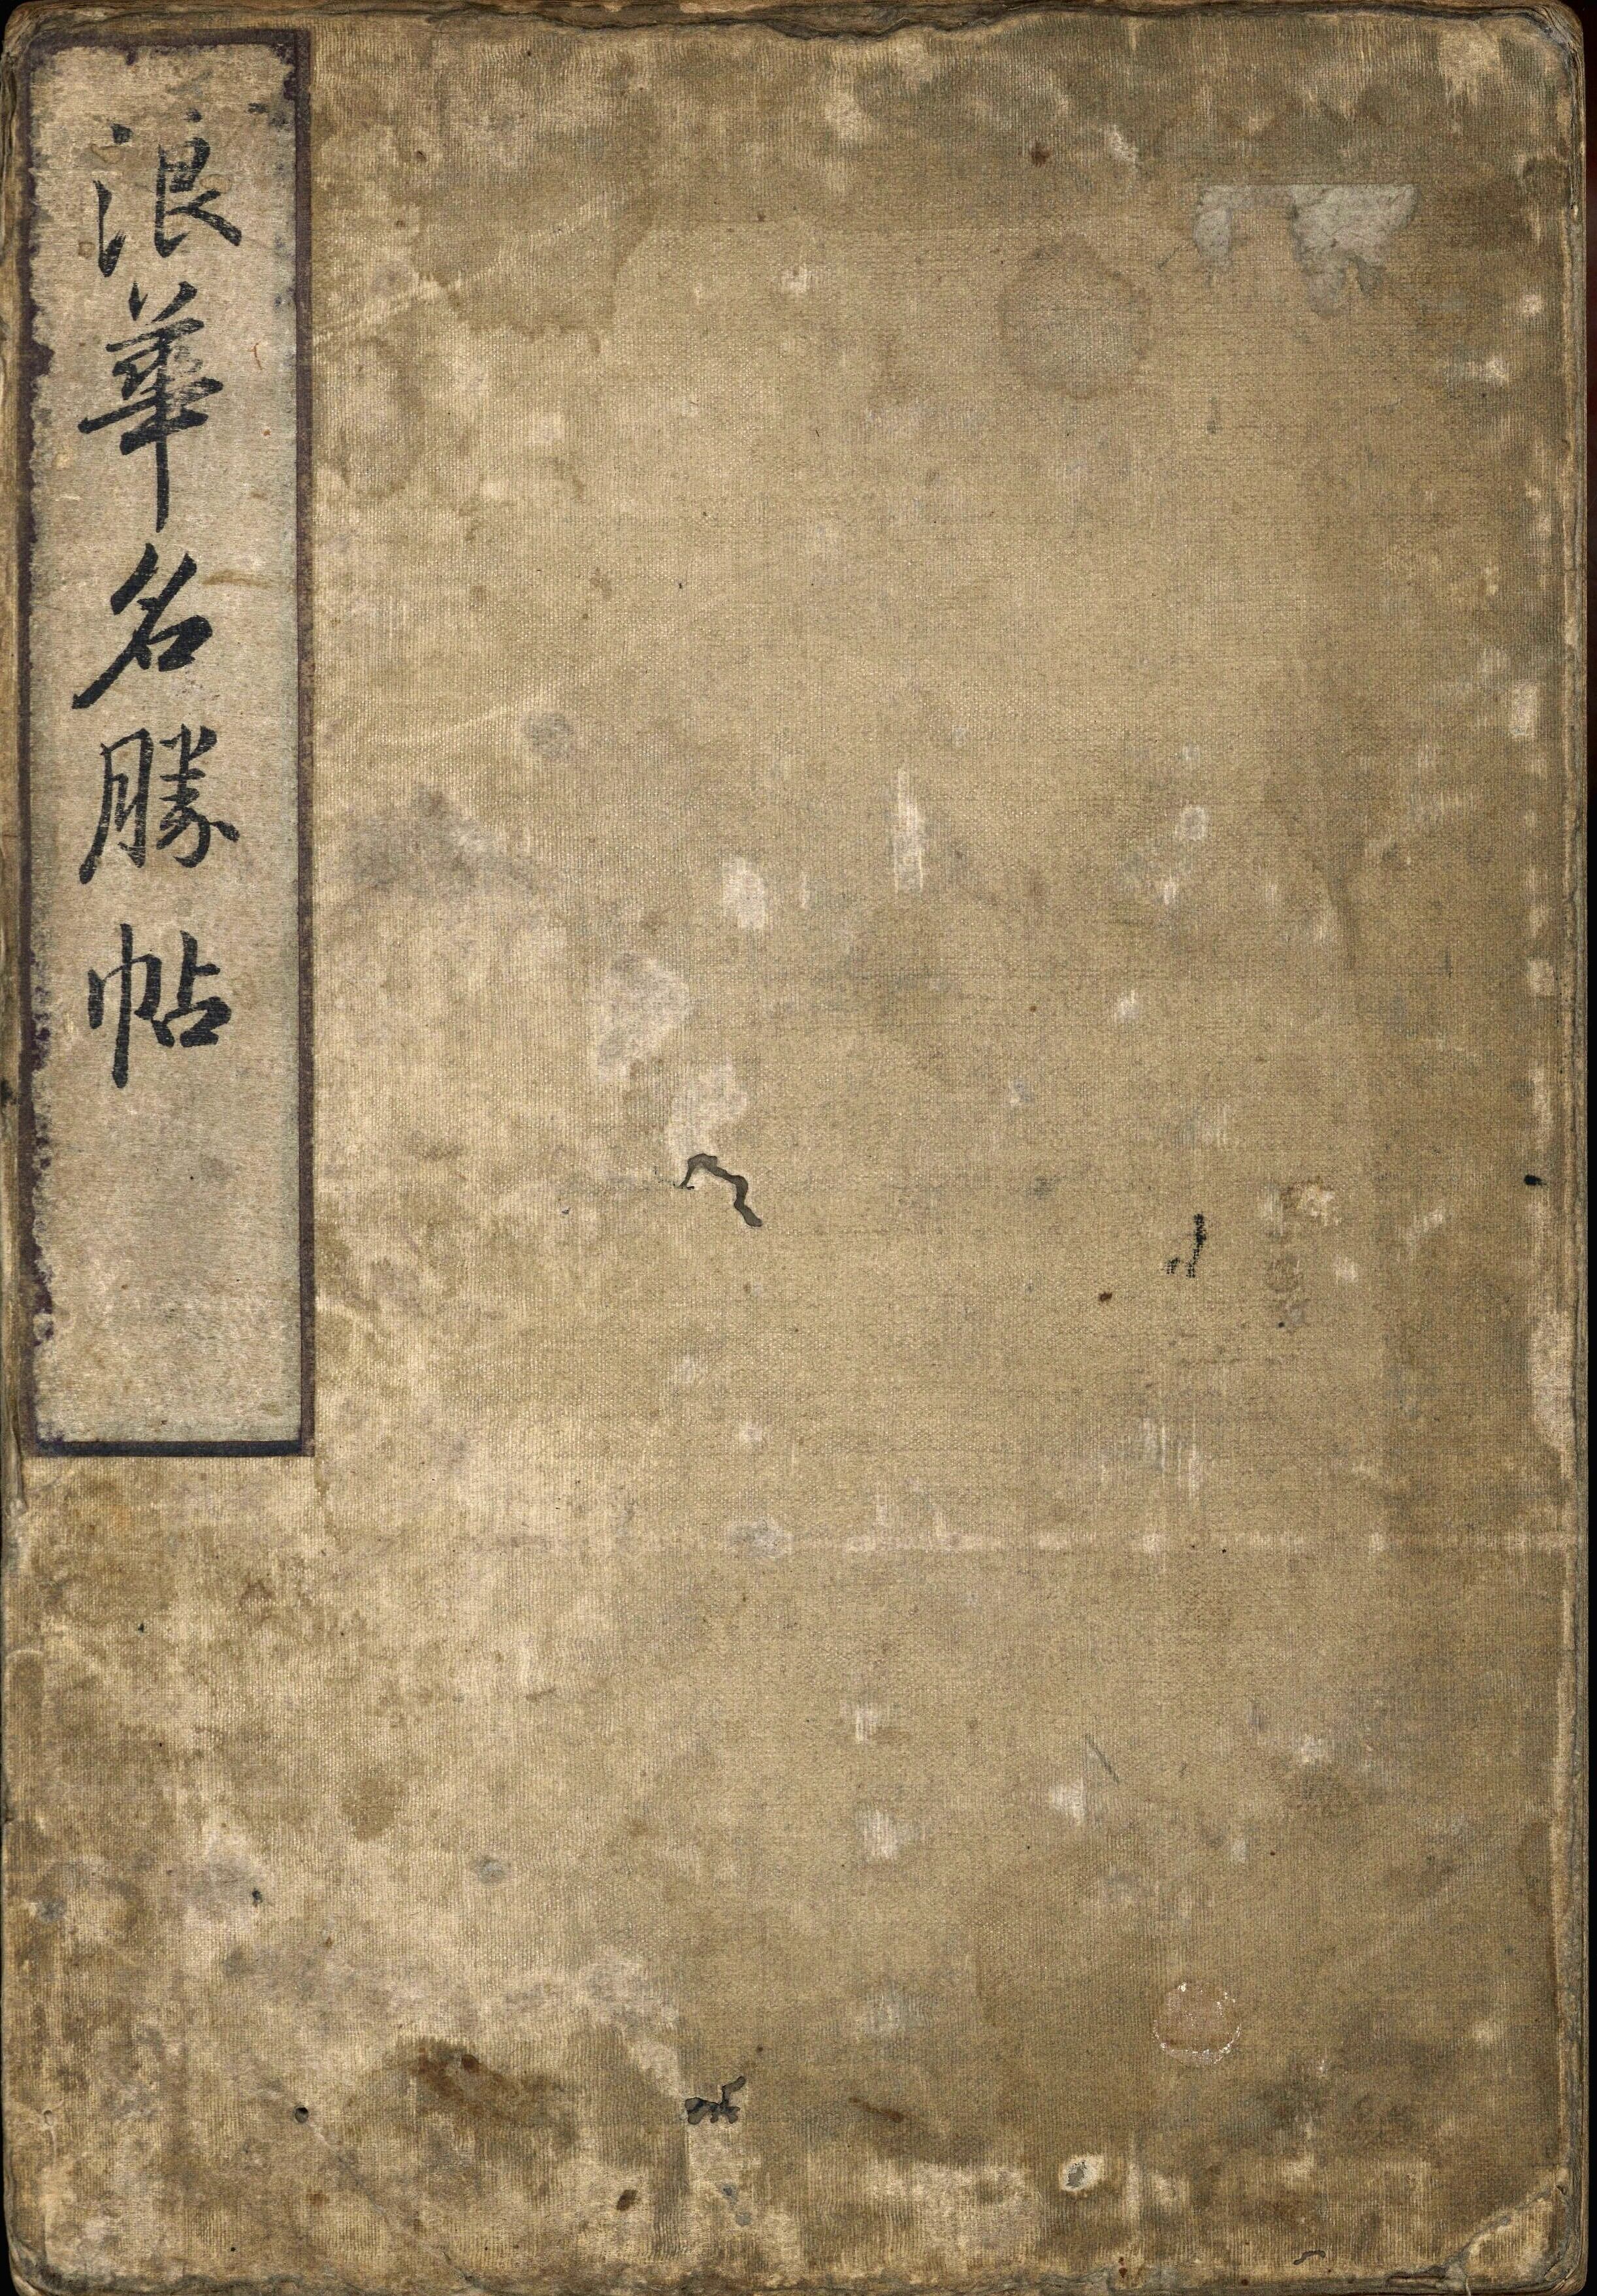 浪華名勝帖